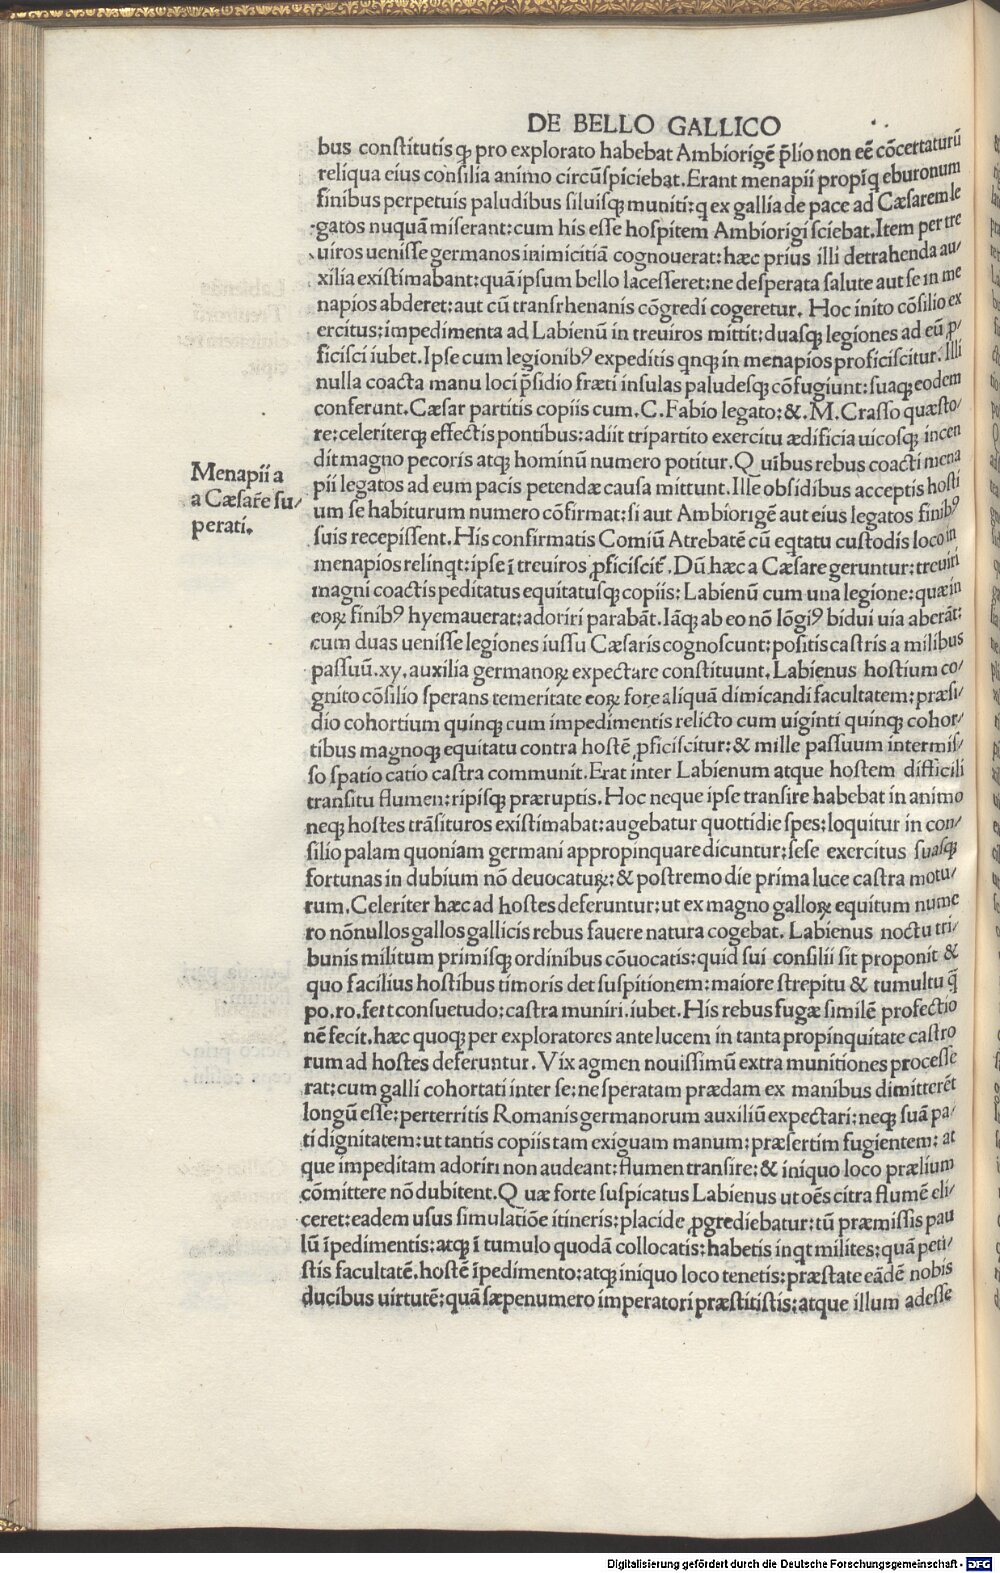 DE BELLO GALLICO
bus conſtitutis ꝙ pro explorato habebat Ambiorigē p̄lio non eē cōcertaturū
reliqua eius conſilia animo circūſpiciebat. Erant menapii propiq eburonum
finibus perpetuis paludibus ſiluiſqȝ muniti: q ex gallia de pace ad Cæſarem le
gatos nuquā miſerant: cum his eſſe hoſpitem Ambiorigi ſciebat. Item per tre
uiros ueniſſe germanos inimicitiā cognouerat: hæc prius illi detrahenda au/
xilia exiſtimabant: quā ipſum bello laceſſeret: ne deſperata ſalute aut ſe in me
napios abderet: aut cū tranſrhenanis cōgredi cogeretur. Hoc inito cōſilio ex
ercitus: impedimenta ad Labienū in treuiros mittit: duaſqȝ legiones ad eū ꝓ/
ficiſci iubet. Ipſe cum legionibꝰ expeditis qnqȝ in menapios proficiſcitur. Illi
nulla coacta manu loci p̄ſidio fræti inſulas paludeſqȝ cōfugiunt: ſuaqȝ eodem
conferunt. Cæſar partitis copiis cum. C. Fabio legato: &. M. Craſſo quæſto/
re: celeriterqȝ effectis pontibus: adiit tripartito exercitu ædificia uicoſqȝ incen
dit magno pecoris atqȝ hominū numero potitur. Q uibus rebus coacti mena
pii legatos ad eum pacis petendæ cauſa mittunt. Ille obſidibus acceptis hoſti
um ſe habiturum numero cōfirmat: ſi aut Ambiorigē aut eius legatos finibꝰ
ſuis recepiſſent. His confirmatis Comiū Atrebatē cū eqtatu cuſtodis loco in
menapios relinqt: ipſe ī treuiros ꝓficiſcit̄. Dū hæc a Cæſare geruntur: treuiri
magni coactis peditatus equitatuſqȝ copiis: Labienū cum una legione: quæ in
eoꝝ finibꝰ hyemauerat: adoriri parabāt. Iāqȝ ab eo nō lōgiꝰ bidui uia aberāt:
cum duas ueniſſe legiones iuſſu Cæſaris cognoſcunt: poſitis caſtris a milibus
paſſuū. xy. auxilia germanoꝝ expectare conſtituunt. Labienus hoſtium co/
gnito cōſilio ſperans temeritate eoꝝ fore aliquā dimicandi facultatem: præſi/
dio cohortium quinqȝ cum impedimentis relicto cum uiginti quinqȝ cohor/
tibus magnoqȝ equitatu contra hoſtē ꝓficiſcitur: & mille paſſuum intermiſ/
ſo ſpatio catio caſtra communit. Erat inter Labienum atque hoſtem difficili
tranſitu flumen: ripiſqȝ præruptis. Hoc neque ipſe tranſire habebat in animo
neqȝ hoſtes trāſituros exiſtimabat: augebatur quottidie ſpes: loquitur in con/
ſilio palam quoniam germani appropinquare dicuntur: ſeſe exercitus ſuaſqȝ
fortunas in dubium nō deuocatuꝝ: & poſtremo die prima luce caſtra motu/
rum. Celeriter hæc ad hoſtes deferuntur: ut ex magno galloꝝ equitum nume
ro nōnullos gallos gallicis rebus fauere natura cogebat. Labienus noctu tri/
bunis militum primiſqȝ ordinibus cōuocatis: quid ſui conſilii ſit proponit &
quo facilius hoſtibus timoris det ſuſpitionem: maiore ſtrepitu & tumultu q̄
po. ro. fert conſuetudo: caſtra muniri. iubet. His rebus fugæ ſimilē profectio
nē fecit. hæc quoqȝ per exploratores ante lucem in tanta propinquitate caſtro
rum ad hoſtes deferuntur. Vix agmen nouiſſimū extra munitiones proceſſe
rat: cum galli cohortati inter ſe: ne ſperatam prædam ex manibus dimitterēt
longū eſſe: perterritis Romanis germanorum auxiliū expectari: neqȝ ſuā pa/
ti dignitatem: ut tantis copiis tam exiguam manum: præſertim fugientem: at
que impeditam adoriri non audeant: flumen tranſire: & iniquo loco prælium
cōmittere nō dubitent. Q uæ forte ſuſpicatus Labienus ut oēs citra flumē eli/
ceret: eadem uſus ſimulatiōe itineris: placide ꝓgrediebatur: tū præmiſſis pau
lū īpedimentis: atqȝ ī tumulo quodā collocatis: habetis inqt milites: quā peti/
ſtis facultatē. hoſtē īpedimento: atqȝ iniquo loco tenetis: præſtate eādē nobis
ducibus uirtutē: quā ſæpenumero imperatori præſtitiſtis: atque illum adeſſe
Menapii a
a Cæſar̄e ſu/
perati.
Digitalisierung gefördert durch die Deutsche Forschungsgemeinschaft - DFG